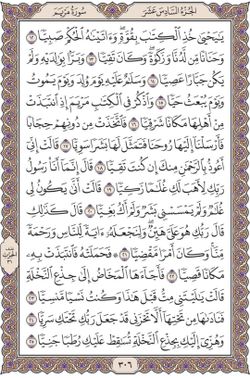 سُورَةُ مَرْيَمَ الجُزْءُ السَّادِسَ عَشَرَ
يَـٰيَحْيَىٰ خُذِ ٱلْكِتَـٰبَ بِقُوَّةٍۢ ۖ وَءَاتَيْنَـٰهُ ٱلْحُكْمَ صَبِيًّۭا ١٢
وَحَنَانًۭا مِّن لَّدُنَّا وَزَكَوٰةًۭ ۖ وَكَانَ تَقِيًّۭا ١٣ وَبَرًّۢا بِوَٰلِدَيْهِ وَلَمْ
يَكُن جَبَّارًا عَصِيًّۭا ١٤ وَسَلَـٰمٌ عَلَيْهِ يَوْمَ وُلِدَ وَيَوْمَ يَمُوتُ
وَيَوْمَ يُبْعَثُ حَيًّۭا ١٥ وَٱذْكُرْ فِى ٱلْكِتَـٰبِ مَرْيَمَ إِذِ ٱنتَبَذَتْ
مِنْ أَهْلِهَا مَكَانًۭا شَرْقِيًّۭا ١٦ فَٱتَّخَذَتْ مِن دُونِهِمْ حِجَابًۭا
فَأَرْسَلْنَآ إِلَيْهَا رُوحَنَا فَتَمَثَّلَ لَهَا بَشَرًۭا سَوِيًّۭا ١٧ قَالَتْ إِنِّىٓ
أَعُوذُ بِٱلرَّحْمَـٰنِ مِنكَ إِن كُنتَ تَقِيًّۭا ١٨ قَالَ إِنَّمَآ أَنَا۠ رَسُولُ
رَبِّكِ لِأَهَبَ لَكِ غُلَـٰمًۭا زَكِيًّۭا ١٩ قَالَتْ أَنَّىٰ يَكُونُ لِى
غُلَـٰمٌۭ وَلَمْ يَمْسَسْنِى بَشَرٌۭ وَلَمْ أَكُ بَغِيًّۭا ٢٠ قَالَ كَذَٰلِكِ
قَالَ رَبُّكِ هُوَ عَلَىَّ هَيِّنٌۭ ۖ وَلِنَجْعَلَهُۥٓ ءَايَةًۭ لِّلنَّاسِ وَرَحْمَةًۭ
مِّنَّا ۚ وَكَانَ أَمْرًۭا مَّقْضِيًّۭا ٢١ فَحَمَلَتْهُ فَٱنتَبَذَتْ بِهِۦ
مَكَانًۭا قَصِيًّۭا ٢٢ فَأَجَآءَهَا ٱلْمَخَاضُ إِلَىٰ جِذْعِ ٱلنَّخْلَةِ
قَالَتْ يَـٰلَيْتَنِى مِتُّ قَبْلَ هَـٰذَا وَكُنتُ نَسْيًۭا مَّنسِيًّۭا ٢٣
فَنَادَىٰهَا مِن تَحْتِهَآ أَلَّا تَحْزَنِى قَدْ جَعَلَ رَبُّكِ تَحْتَكِ سَرِيًّۭا ٢٤
وَهُزِّىٓ إِلَيْكِ بِجِذْعِ ٱلنَّخْلَةِ تُسَـٰقِطْ عَلَيْكِ رُطَبًۭا جَنِيًّۭا ٢٥
٣٠٦